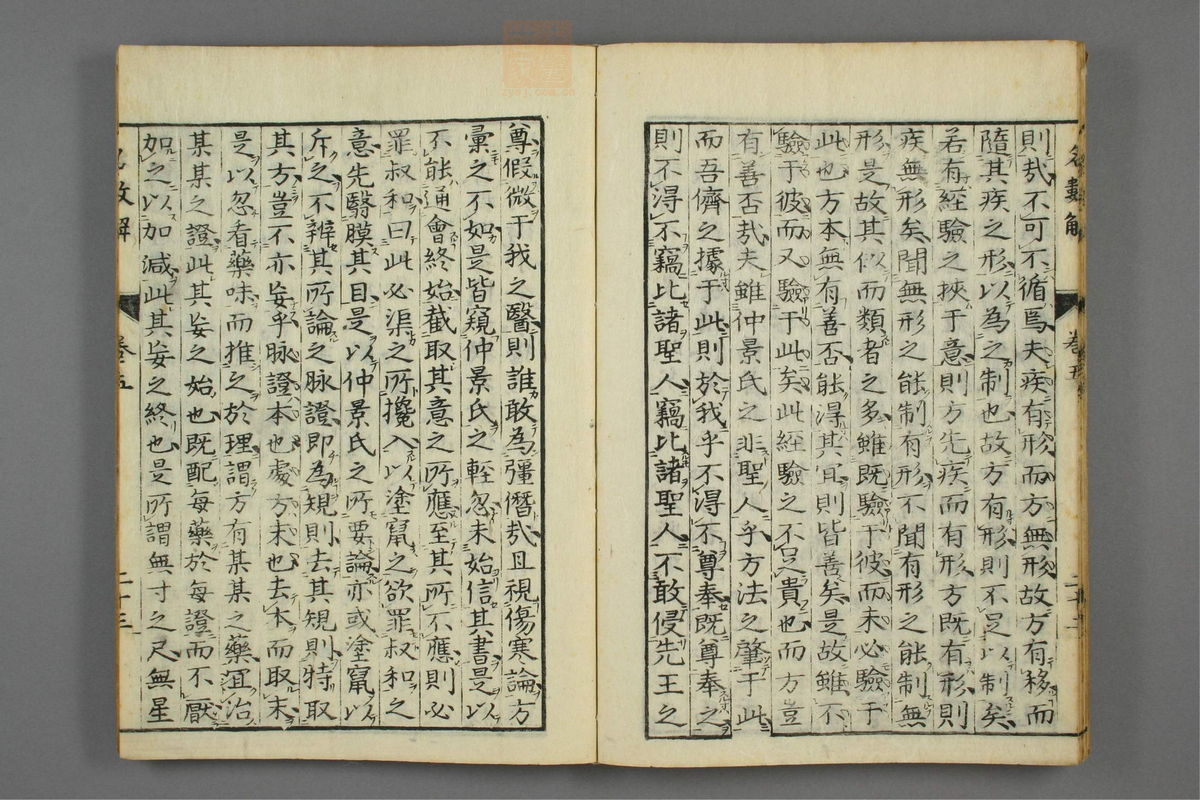 則㢤不可不循焉夫疾有形而方無形故方有移而
隨其疾之形以為之制也故方有形則不足以制矣
若有經驗之挾于意則方先疾而有形方既有形則
疾無形矣聞無形之能制有形不聞有形之能制無
形是故其似而類者之多雖既驗于彼而未必驗于
此也方本無有善否能得其宜則皆善矣是故雖不
驗于彼而又驗于此矣此經驗之不足貴也而方豈
有善否㢤夫雖仲景氏之非聖人乎方法之肇于此
而吾儕之據于此則於我乎不得不尊奉既尊奉之
則不得不竊比諸聖人竊比諸聖人不敢侵先王之
名數解
卷五
二十二
尊假微于我之醫則誰敢為彊僭㢤且視傷寒論方
彙之不如是皆窺仲景氏之輕忽未始信其書是以
不能通會終始截取其意之所應至其所不應則必
罪叔和曰此必渠之所攙入以塗竄之欲罪叔和之
意先翳膜其目是以仲景氏之所要論亦或塗竄以
斥之不辨其所論之脉證即為規則去其規則特取
其方豈不亦妄乎脉證本也處方末也去本而取末
是以忽看藥味而推之於理謂方有某某之藥宜治
某某之證此其妄之始也既配每藥於每證而不厭
加之以加減此其妄之終也是所謂無寸之尺無星
名數解
卷五
二十三